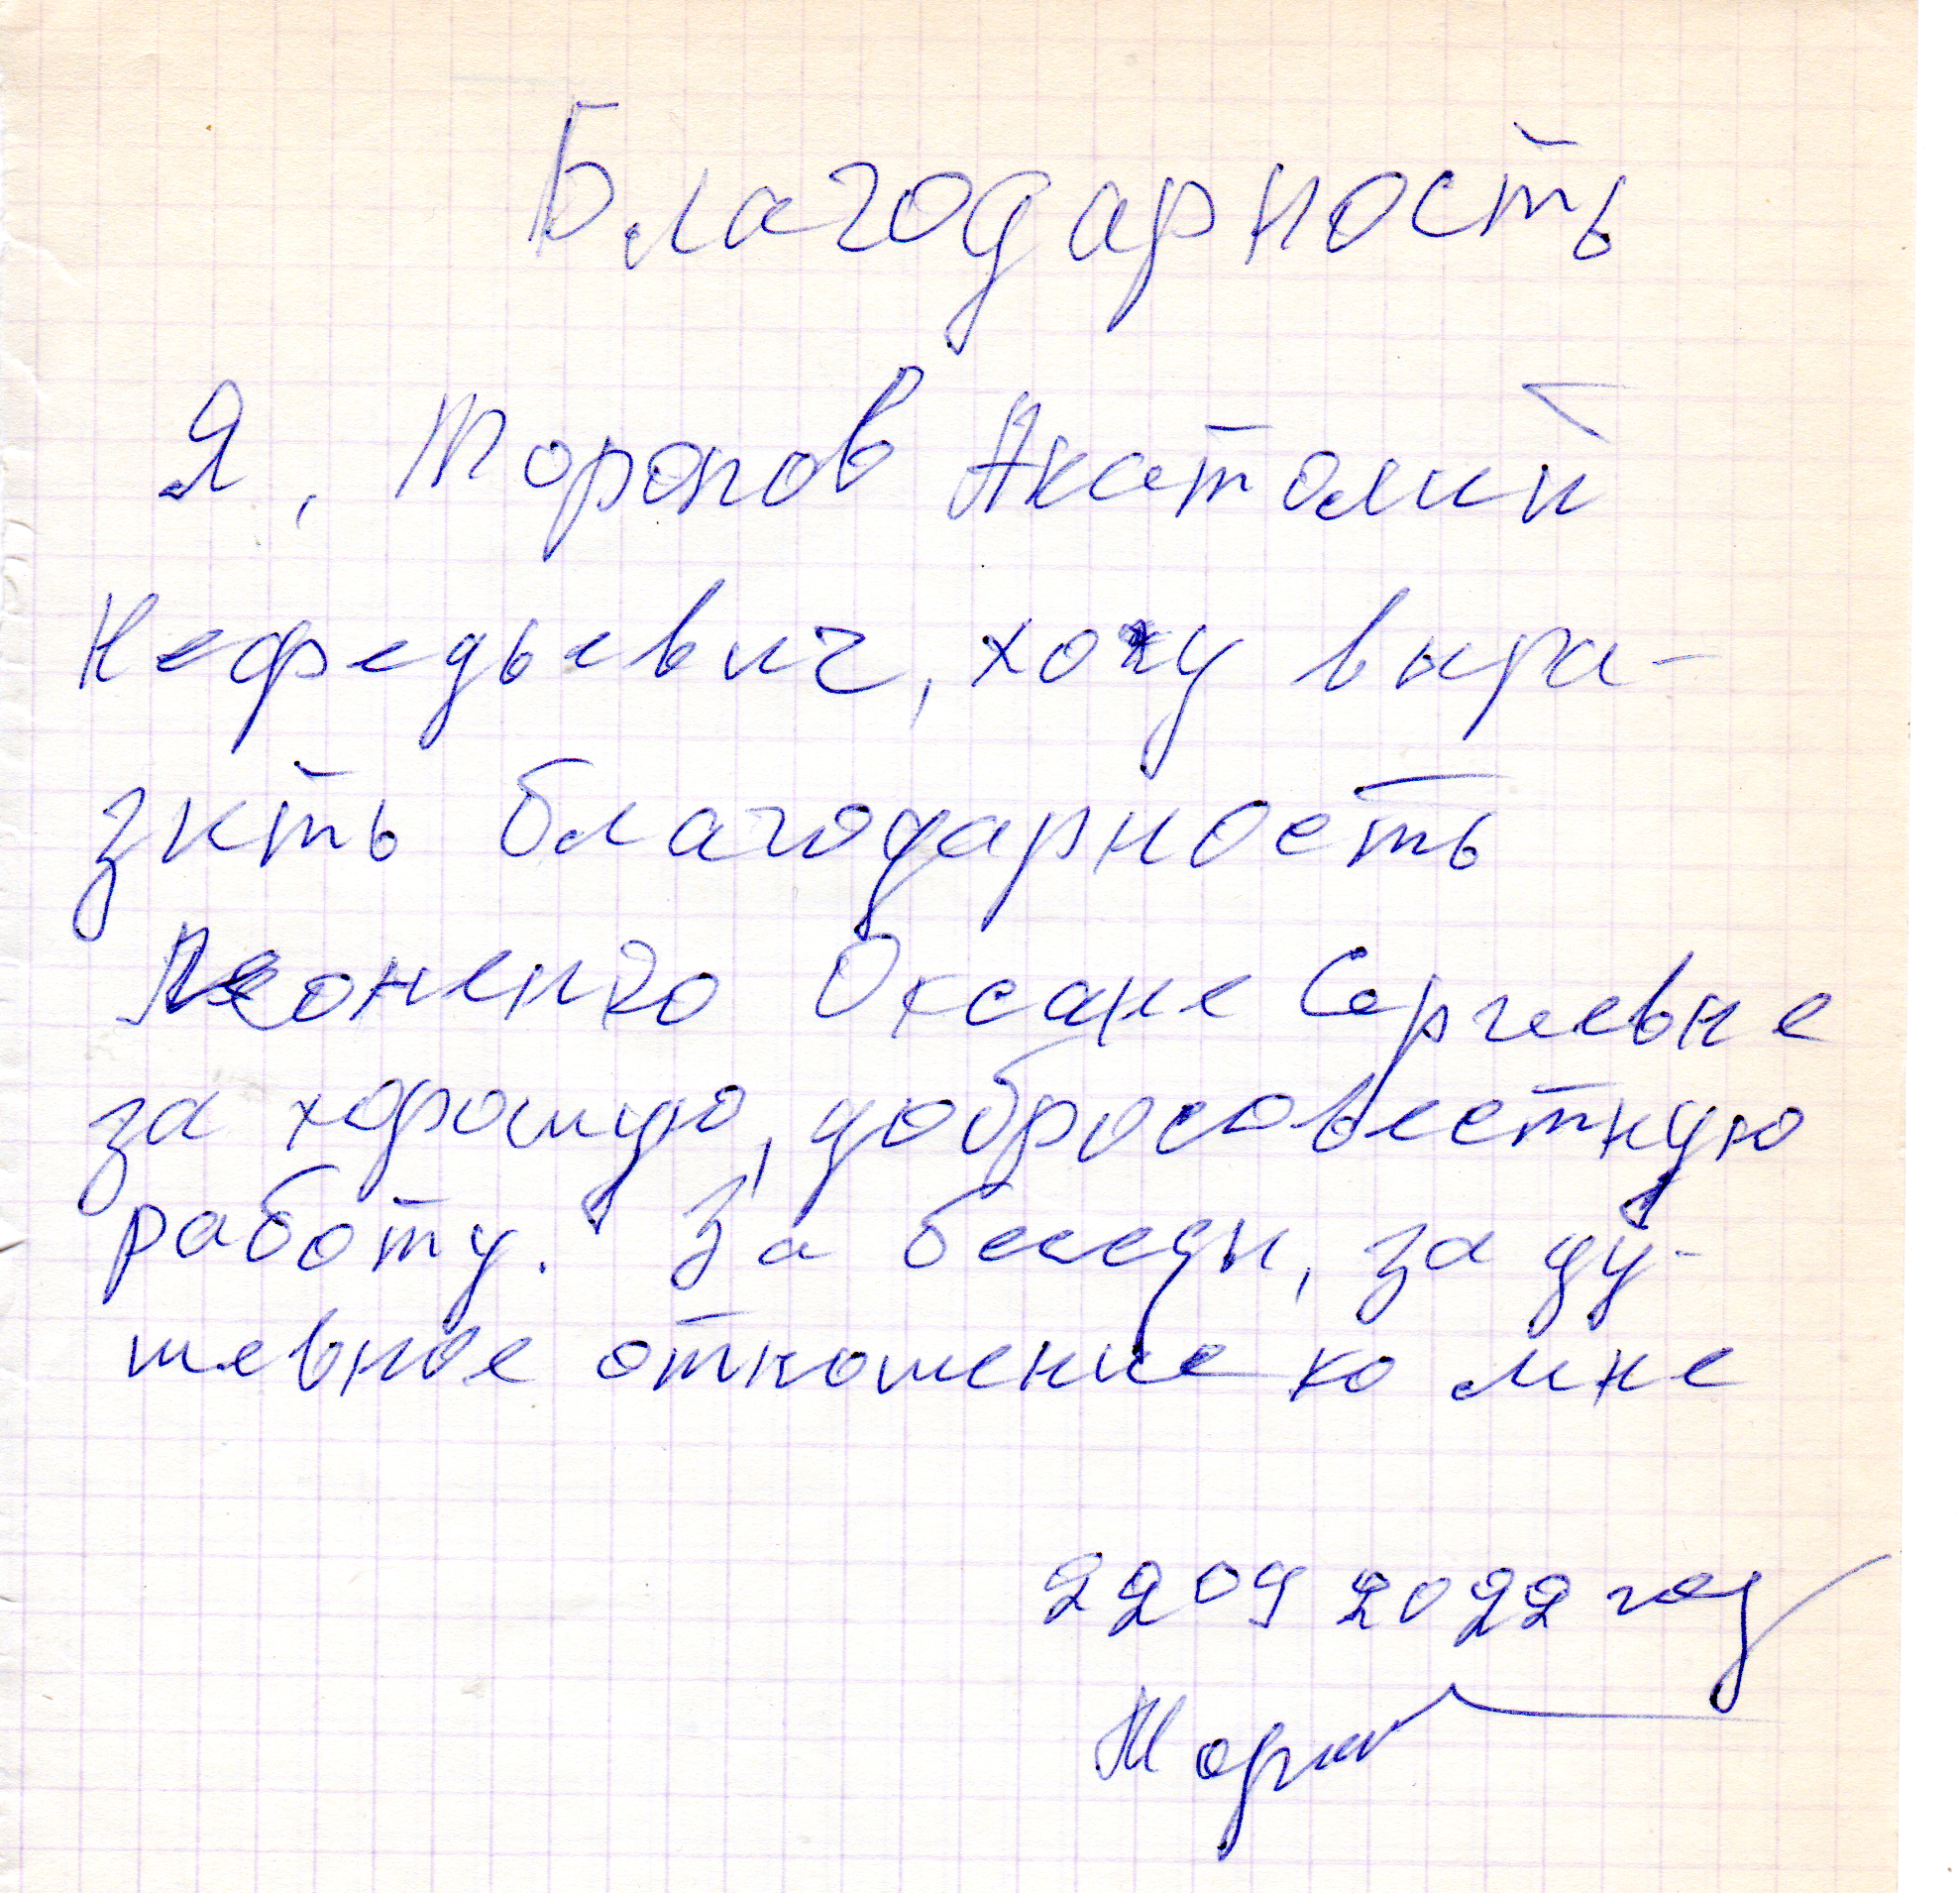 Благодарность
Я, Торопов Анатолий
Нефедьевич, хочу выра-
зить благодарность
Леоненко Оксане Сергеевне
за хорошую, добросовестную
работу. За беседы, за ду-
шевное отношение ко мне
22 09 2022 год